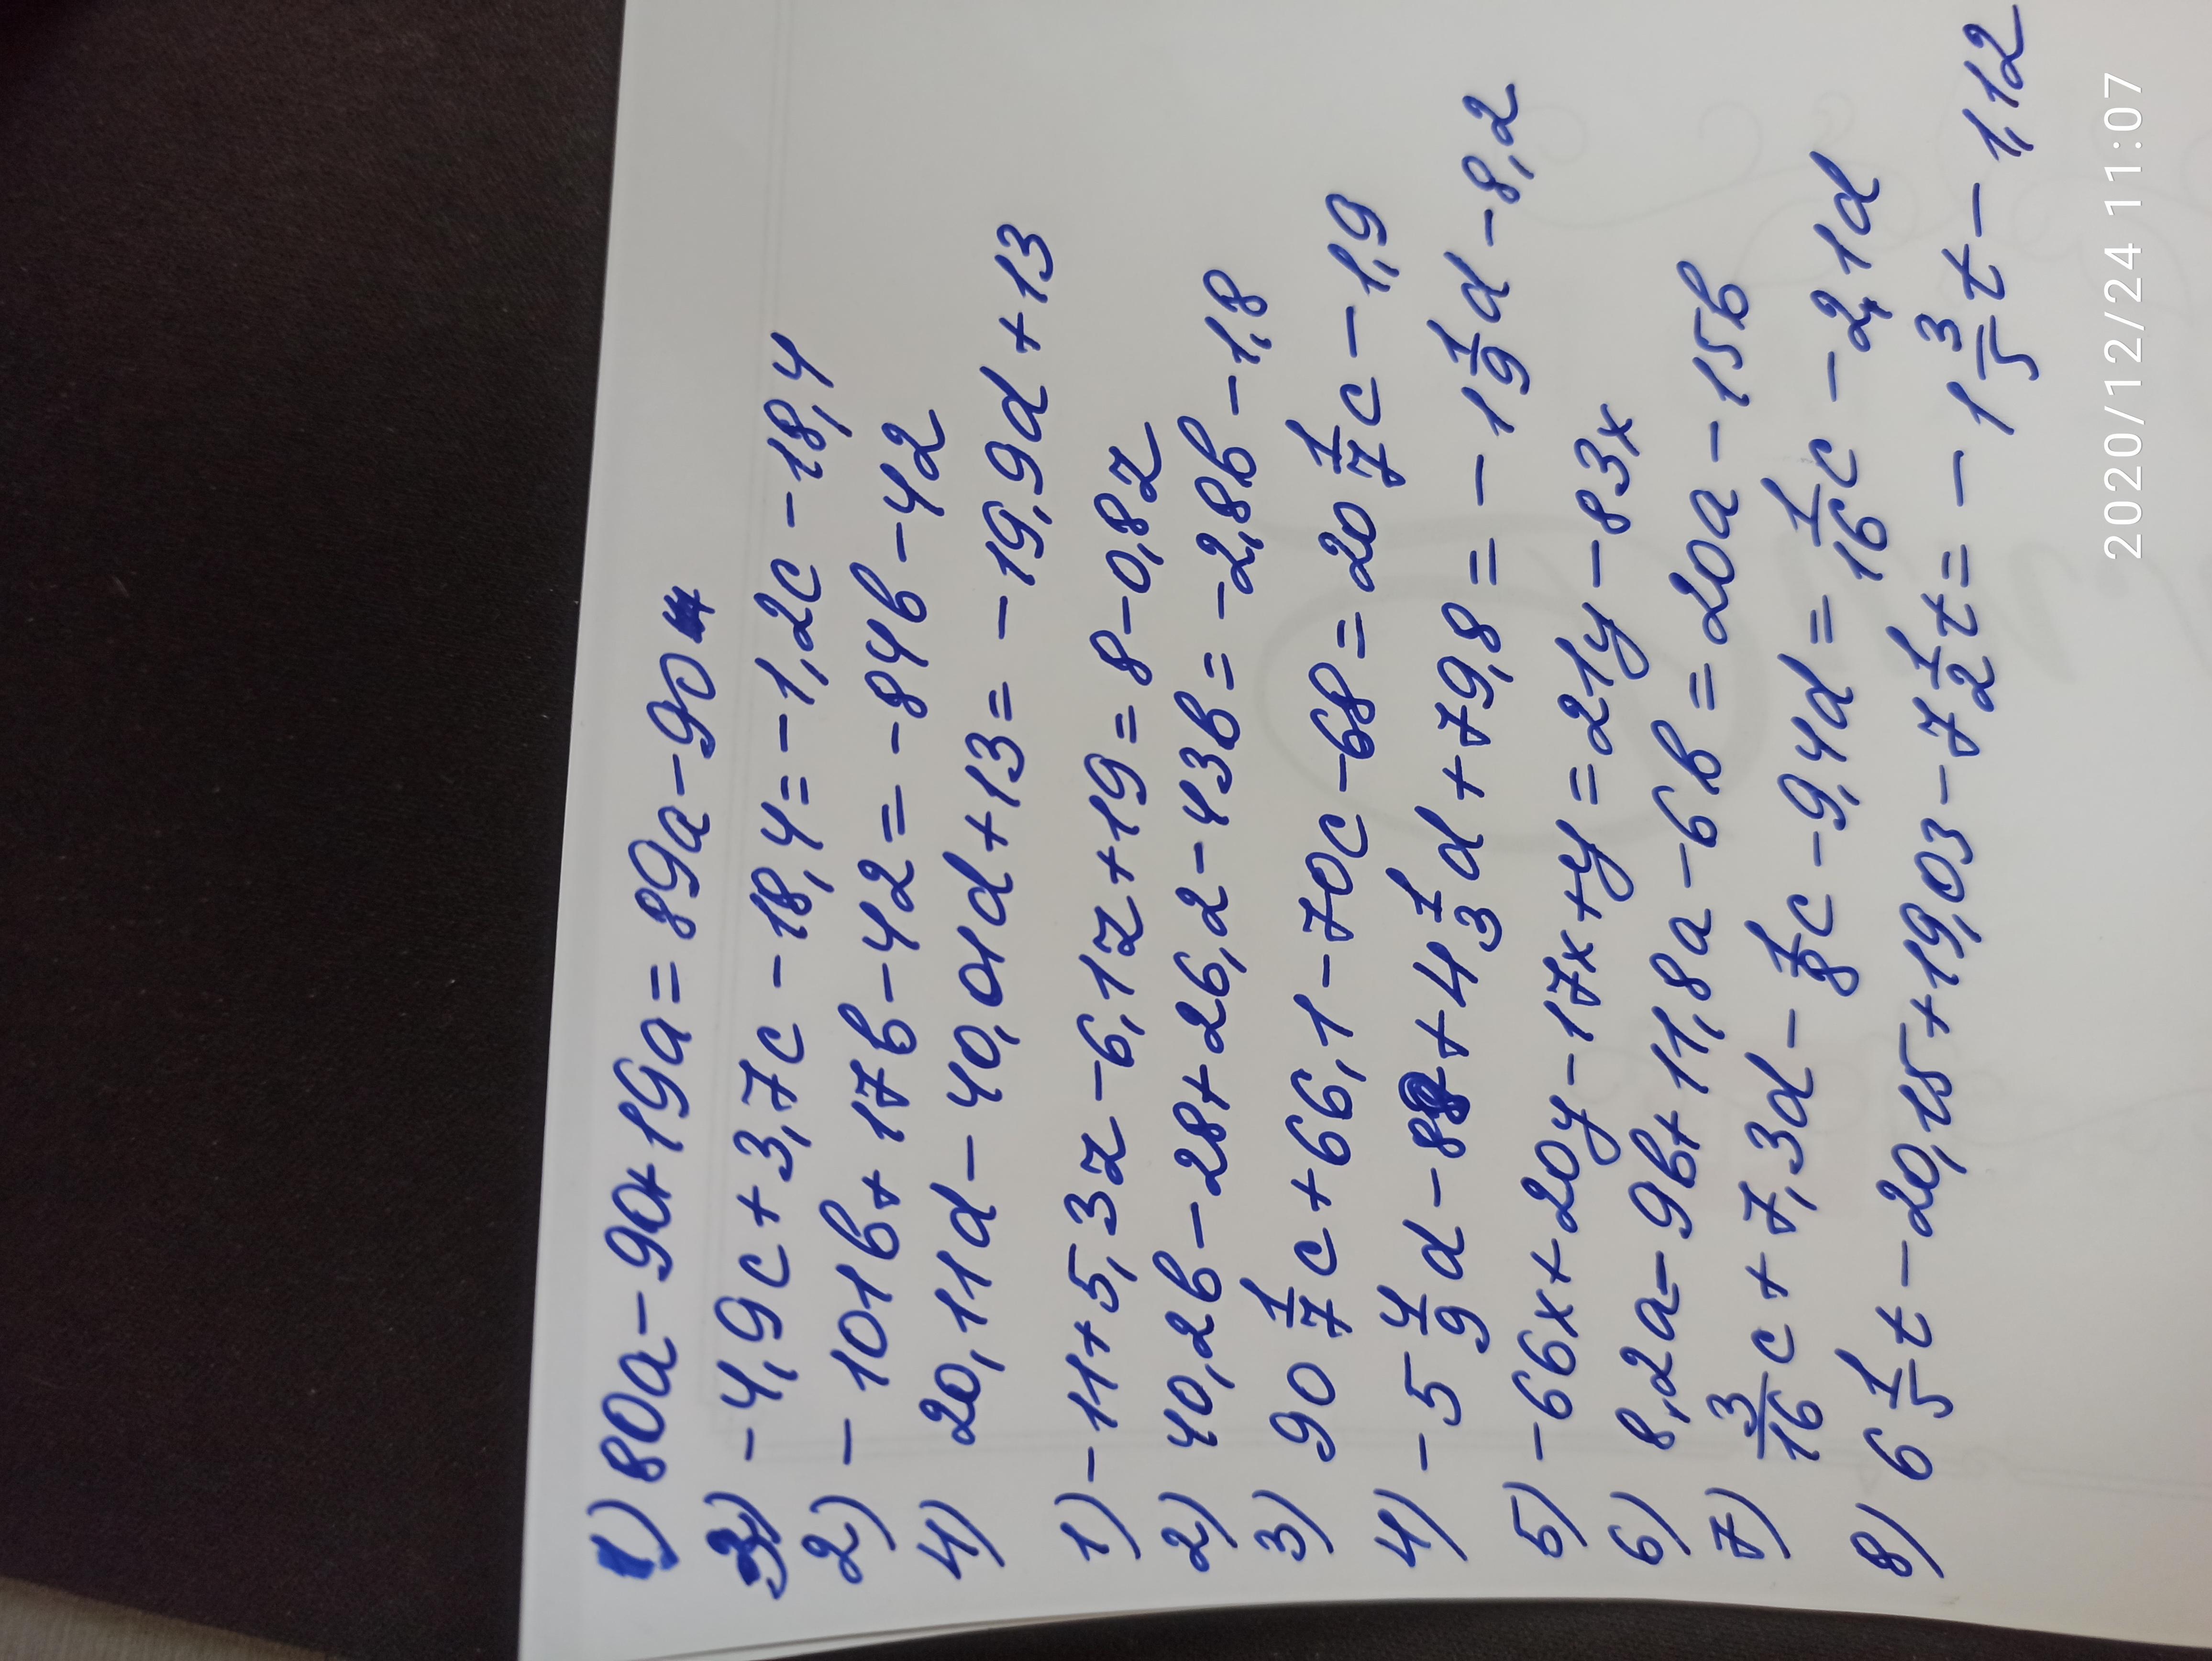 1) 80a - 90 + 19a = 89a - 90
3) -4,9c + 3,7c - 18,4 = -1,2c - 18,4
2) - 101b + 17b - 42 = -84b - 42
4) 20,11d - 40,01d + 13 = - 19,9d + 13
1) -11 + 5,3z - 6,1z + 19 = 8 - 0,8z
2) 40,2b - 28 + 26,2 - 43b = -2,8b - 1,8
3) 90 1/7 c + 66,1 - 70c - 68 = 20 1/7 c - 1,9
4) - 5 4/9 d - 88 + 4 1/3 d + 79,8 = - 1 1/9 d - 8,2
5) -66x + 20y - 17x + y = 21y - 83x
6) 8,2a - 9b + 11,8a - 6b = 20a - 15b
7) 3/16 c + 7,3d - 1/8 c - 9,4d = 1/16 c - 2,1d
8) 6 1/5 t - 20,15 + 19,03 - 7 1/2 t = - 1 3/5 t - 1,12
2020/12/24 11:07